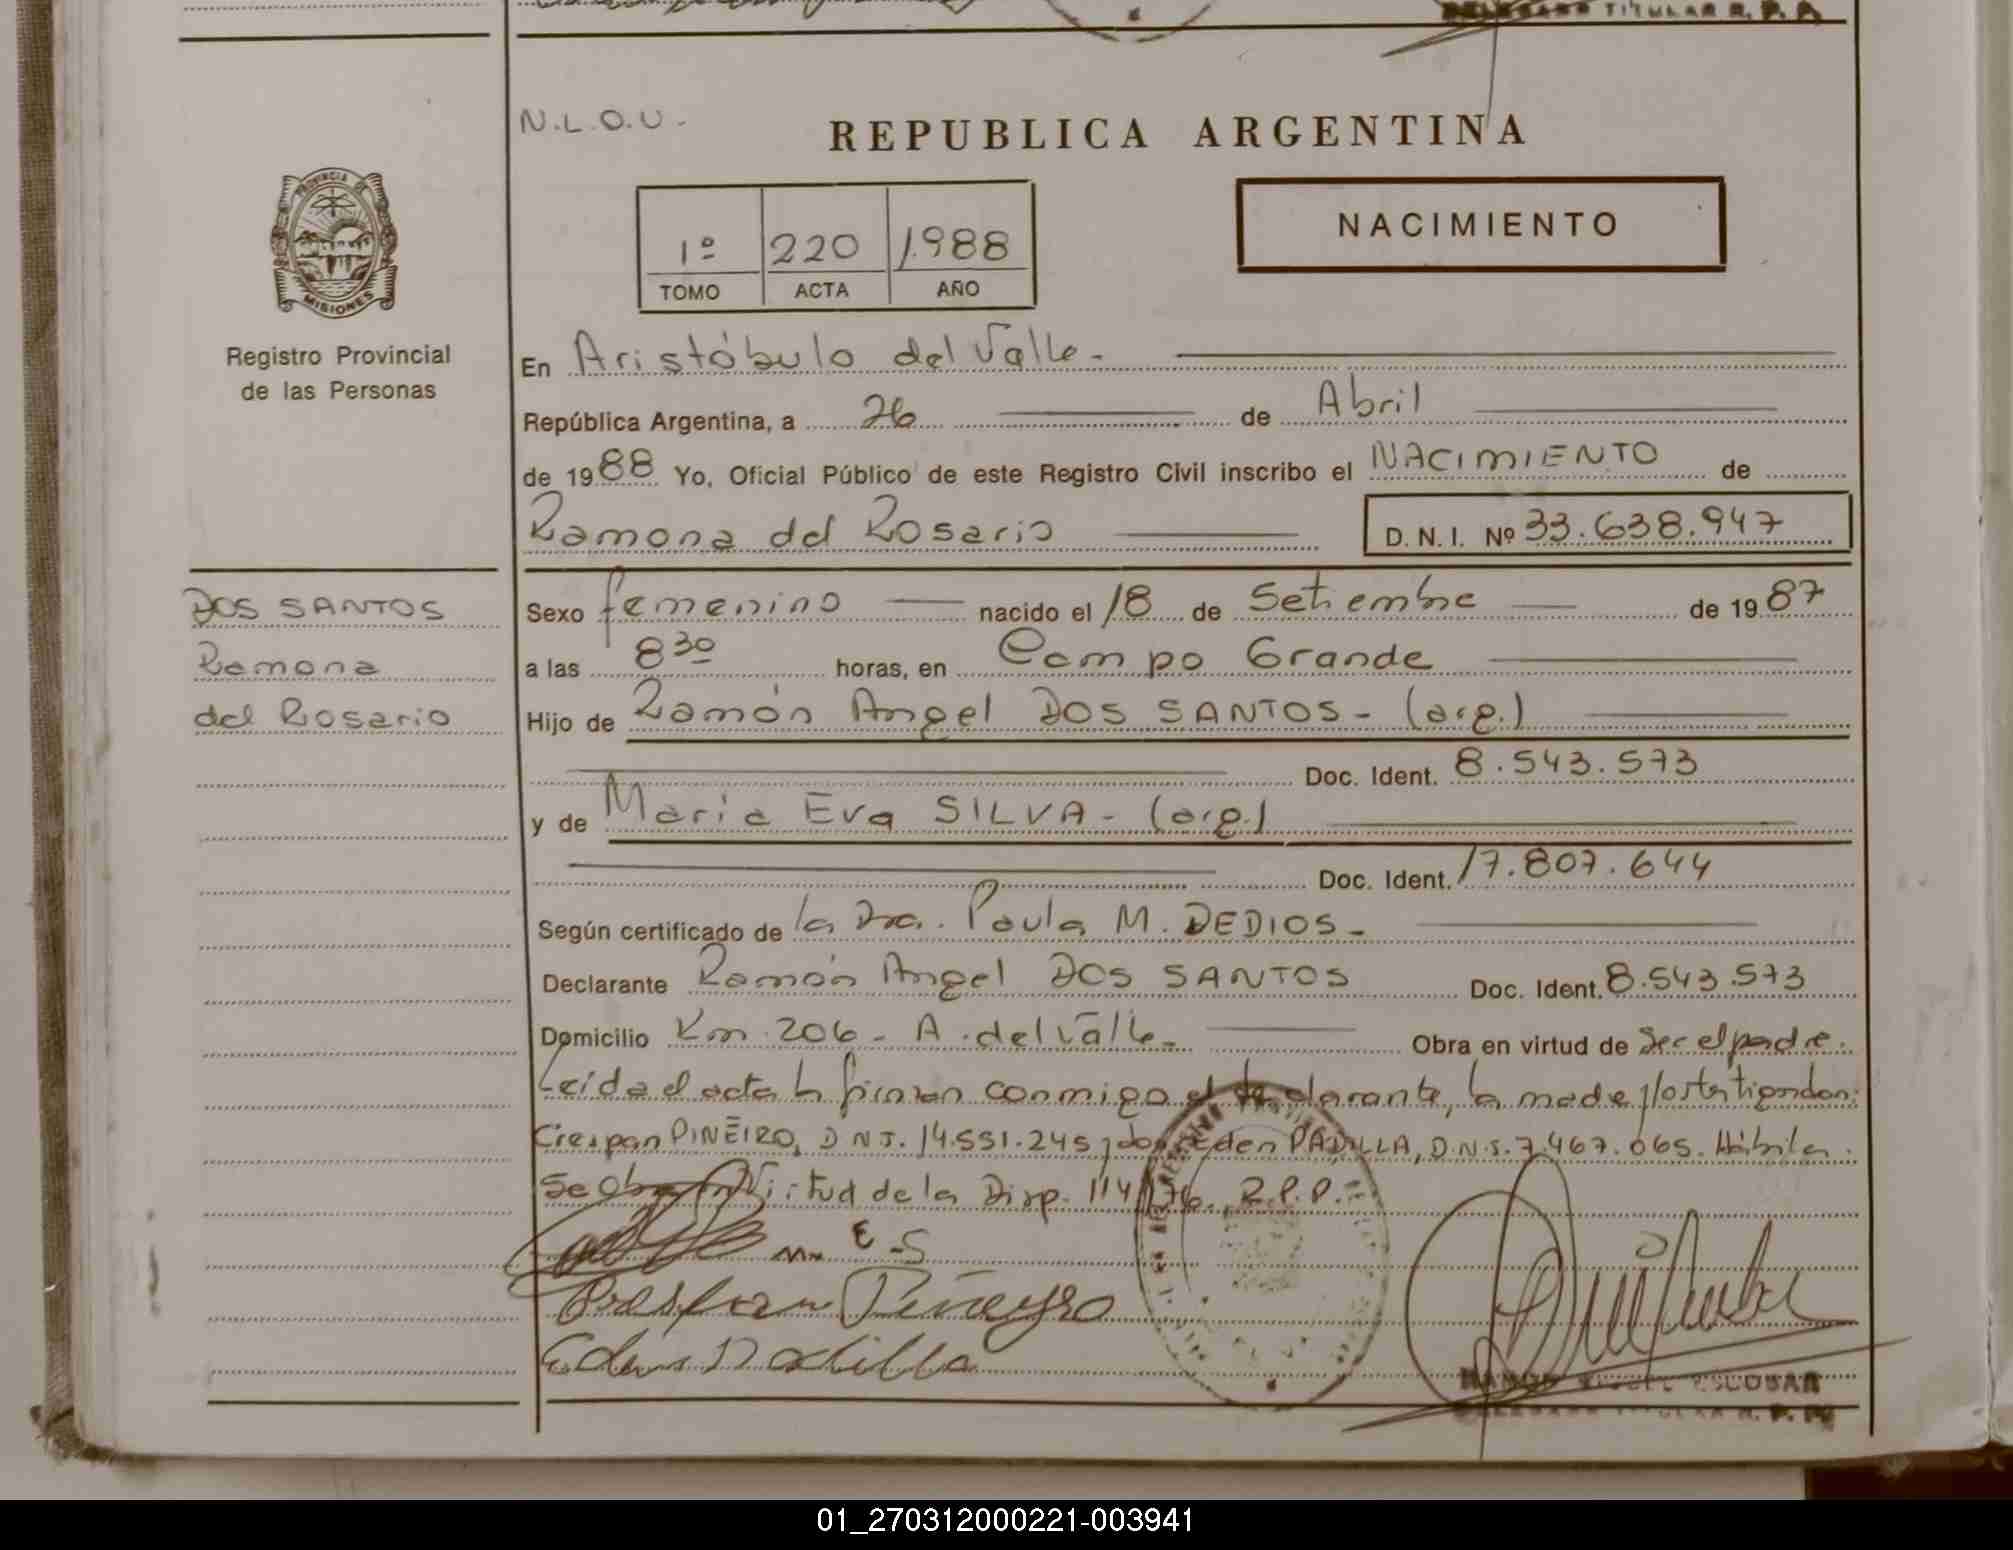 DELEGADO TITULAR R. P. P.
N.L.O.U.
REPUBLICA ARGENTINA
PROVINCIA DE
MISIONES
Registro Provincial
de las Personas
1º 220 1988
TOMO ACTA AÑO
NACIMIENTO
En Aristóbulo del Valle-
República Argentina, a 26 de Abril
de 1988 Yo, Oficial Público de este Registro Civil inscribo el NACIMIENTO de
Ramona del Rosario D. N. I. Nº 33.638.947
DOS SANTOS
Ramona
del Rosario
Sexo femenino nacido el 18 de Setiembre de 1987
a las 8 30 horas, en Campo Grande
Hijo de Ramón Angel DOS SANTOS- (arg.)
Doc. Ident. 8.543.573
y de María Eva SILVA- (arg.)
Doc. Ident. 17.807.644
Según certificado de la Dra. Paula M. DEDIOS-
Declarante Ramón Angel DOS SANTOS Doc. Ident. 8.543.573
Domicilio Km. 206- A. del Valle- Obra en virtud de ser el padre.
Leída el acta la firman conmigo el declarante, la madre y los testigos don:
Crespan PIÑEIRO, DNI. 14.551.245 y don Eden PADILLA, D.N.I. 7.467.065. Hábiles.
Se Obra en Virtud de la Disp. 114/76. R.P.P.
M E S
Crespan Piñeyro
Eden Padilla
RAMON MIGUEL ESCOBAR
DELEGADO TITULAR R. P. P.
01_270312000221-003941